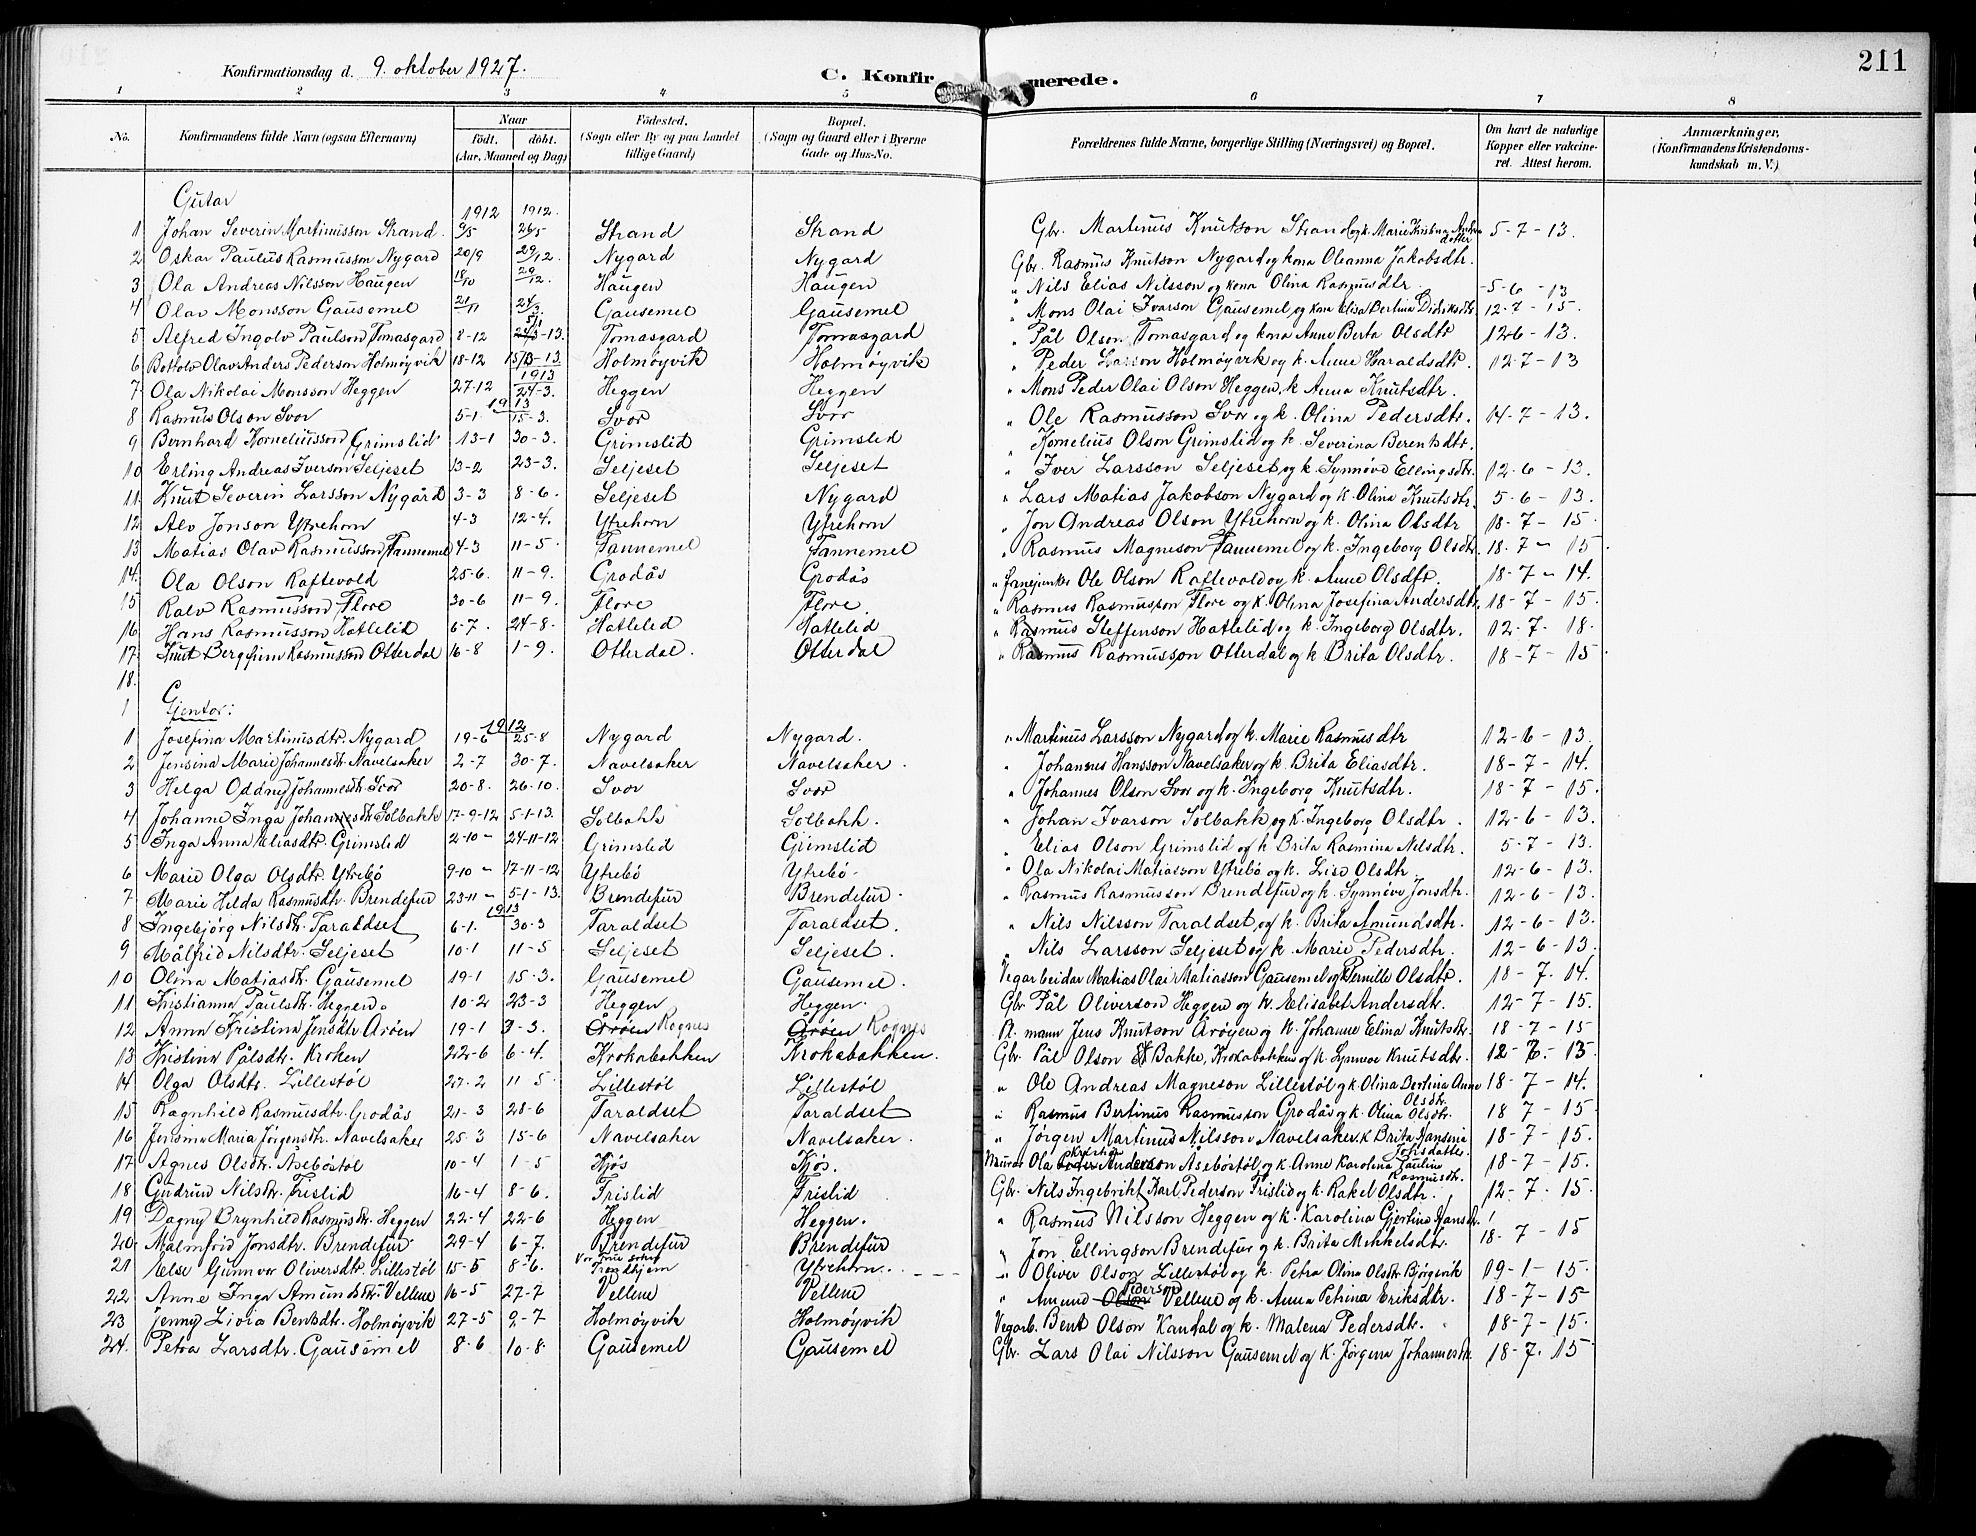 211
Konfirmationsdag d. 9. oktober 1927.
C. Konfirmerede.
1 2 3 4 5 6 7 8
No. Konfirmandens fulde Navn (ogsaa Efternavn) Naar födt. döbt. (Aar, Maaned og Dag) Födested. (Sogn eller By og paa Landet tillige Gaard) Bopæl. (Sogn og Gaard eller i Byerne Gade og Hus-No. Forældrenes fulde Navne, borgerlige Stilling (Næringsvei) og Bopæl. Om havt de naturlige Kopper eller vakcineret. Attest herom. Anmærkninger, (Konfirmandens Kristendomskundskab m. V.)
Gutar
1912 1912.
1 Johan Severin Martinusson Strand. 26/5 Strand Strand Gbr. Martinus Knutson Strand og k. Marie Kristina Andersdotter 5-7-13.
2 Oskar Paulus Rasmusson Nygard 20/9 29/12. Nygard Nygard Gbr. Rasmus Knutson Nygard og kona Oleanna Jakobsdtr.
3 Ola Andreas Nilsson Haugen 18/10 29/12. Haugen Haugen " Nils Elias Nilsson og kona Olina Rasmusdtr. 5-6-13
4 Olav Monsson Gausemel 21/11 24/3. Gausemel Gausemel " Mons Olai Ivarson Gausemel og kona Elisa Bertina Didriksdtr 12-7-15.
5 Alfred Ingolv Paulson Tomasgard 8-12 24/3-13. Tomasgard Tomasgard " Pål Olson Tomasgard og kona Anne Berta Olsdtr 12-6-13.
6 Bottolv Olav Anders Pederson Holmøyvik 18-12 15/3-13 Holmøyvik Holmøyvik " Peder Larson Holmøyvik og k. Anne Haraldsdtr. 12-7-13
1913
7 Ola Nikolai Monsson Heggen 27-12 24-3. Heggen Heggen " Mons Peder Olai Olson Heggen, k. Anna Knutsdtr.
1913
8 Rasmus Olson Svor 5-1. 15-3. Svor Svor " Ole Rasmusson Svor og k. Olina Pedersdtr. 14-7-13.
9 Bernhard Korneliusson Grimslid 13-1 30-3. Grimslid Grimslid " Kornelius Olson Grimslid og k. Severina Berentsdtr.
10 Erling Andreas Iverson Seljeset 13-2 23-3. Seljeset Seljeset " Iver Larsson Seljeset og k. Synnøve Ellingsdtr. 12-6-13.
11 Knut Severin Larsson Nygård 3-3 8-6. Seljeset Nygard " Lars Matias Jakobson Nygard og k. Olina Knutsdtr. 5-6-13.
12 Alv Jonson Ytrehorn 4-3 12-4. Ytrehorn Ytrehorn " Jon Andreas Olson Ytrehorn og k. Olina Olsdtr 18-7-15.
13 Matias Olav Rasmusson Tannemel 4-3 11-5. Tannemel Tannemel " Rasmus Magneson Tannemel og k. Ingeborg Olsdtr. 18-7-15.
14. Ola Olson Raftevold 25-6. 11-9. Grodås Grodås " fanejunker Ole Olson Raftevold og k. Anne Olsdtr. 18-7-14.
15 Ralv Rasmusson Flore 30-6 11-9. Flore Flore. " Rasmus Rasmusson Flore og k. Olina Josefina Andersdtr. 18-7-15.
16 Hans Rasmusson Hatlelid 6-7. 24-8. Hatlelid Hatlelid " Rasmus Steffenson Hatlelid og k. Ingeborg Olsdtr. 12-7-18.
17. Knut Bergheim Rasmusson Otterdal 16-8 1-9. Otterdal. Otterdal " Rasmus Rasmusson Otterdal og k. Brita Olsdtr. 18-7-15.
18.
1 Gjentor:
1912
1 Josefina Martinusdtr. Nygard 19-6 25-8 Nygard Nygard. " Martinus Larsson Nygard og k. Marie Rasmusdtr 12-6-13.
2 Jensina Marie Johannesdtr. Navelsaker 2-7 30-7. Navelsaker Navelsaker. " Johannes Hansson Navelsaker og k. Brita Eliasdtr. 18-7-14.
3 Helga Oddny Johannesdtr Svor 20-8. 26-10. Svor Svor " Johannes Olson Svor og k. Ingeborg Knutsdtr. 18-7-15.
4 Johanne Inga Johannesdtr. Solbakk 17-9-12 5-1-13. Solbakk Solbakk. " Johan Ivarson Solbakk og k. Ingeborg Olsdtr. 12-6-13.
5 Inga Anna Eliasdtr. Grimslid 2-10- 24-11-12 Grimslid Grimslid " Elias Olson Grimslid og k. Brita Rasmina Nilsdtr. 5-7-13.
6 Marie Olga Olsdtr. Ytrebö 9-10- 17-11-12 Ytrebö Ytrebö. " Ola Nikolai Matiasson Ytrebö og k. Lise Olsdtr. 12-6-13.
7 Marie Helda Rasmusdtr. Brendefur 23-11- 5-1-13. Brendefur Brendefur. " Rasmus Rasmusson Brendefur og k. Synnöve Jonsdtr. 12-6-13.
1913
8 Ingebjörg Nilsdtr. Taraldset 6-1. 30-3 Taraldset Taraldset. " Nils Nilsson Taraldset, og k. Brita Amundsdtr. 12-6-13.
9 Målfrid Nilsdtr. Seljeset 10-1 11-5 Seljeset Seljeset. " Nils Larsson Seljeset og k. Marie Pedersdtr. 12-6-13.
10 Olina Matiasdtr. Gausemel 19-1 15-3. Gausemel Gausemel. Vegarbeidar Matias Olai Matiasson Gausemel og k Pernille Olsdtr. 18-7-14.
11 Kristianna Paulsdtr. Heggen. 10-2 23-3 Heggen Heggen. Gbr Pål Oliverson Heggen og k. Elisabet Andersdtr. 12-7-15.
12 Anna Kristina Jensdtr Aröen 19-1 3-3. Åröen Rognes Åröen Rognes Pl. mann Jens Knutson Årøyen og k. Johanne Elina Knutsdtr. 18-7-15
13 Kristina Pålsdtr. Kroken 22-6 6-4. Krokabakken Krokebakken. Gbr Pål Olson Bakke, Krokabakken og k. Synnøve Knutsdtr. 12-7-13.
14 Olga Olsdtr. Lillestöl 27-2 11-5 Lillestöl Lillestöl " Ole Andreas Magneson Lillestöl og k. Olina Bertina Anne Olsdtr. 18-7-14.
15 Ragnhild Rasmusdtr. Grodås 21-3 28-6 Taraldset Taraldset " Rasmus Bertinus Rasmusson Grodås og k. Olina Olsdtr. 18-7-15.
16 Jensina Maria Jörgensdtr. Navelsaker 25-3 15-6 Navelsaker Navelsaker. " Jørgen Martinus Nilsson Navelsaker, k Brita Hansina Johsdatter 18-7-15.
17 Agnes Olsdtr. Åsebøstøl 10-4 1-5 Kjøs Kjøs. Murar Ola Kristian Peder Anderson Åsebøstøl og k. Anne Karolina Pauline Rasmusdtr. 18-7-15.
18 Gudrun Nilsdtr. Frislid 16-4 8-6. Frislid Frislid. Gbr. Nils Ingebrikt Karl Pederson Frislid og k. Rakel Olsdtr. 12-7-15.
19 Dagny Brynhild Rasmusdtr. Heggen 22-4 22-6 Heggen Heggen. " Rasmus Nilsson Heggen og k. Karolina Gjertina Hansdtr.
20 Malmfrid Jonsdtr. Brendefur 29-4 6-7. Brendefur Brendefur " Jon Ellingson Brendefur og k. Brita Mikkelsdtr. 18-7-15
21 Else Gunnvor Oliversdtr. Lillestöl 15-5 8-6. Vor Frue sokn Trondhjem Ytrehorn. " Oliver Olson Lillestöl og k. Petra Olina Olsdtr Bjørgevik 19-1-15.
22 Anne Inga Amundsdtr. Vellene 16-5 27-7 Vellene Vellene " Amund Olson Pederson Vellene og k. Anna Petrina Eriksdtr. 18-7-15
23 Jenny Livia Bentsdtr. Holmöyvik 27-5 2-7 Holmöyvik Holmöyvik Vegarb. Bent Olson Kandal og k. Malena Pedersdtr. 18-7-15.
24. Petra Larsdtr. Gausemel 8-6 10-8. Gausemel Gausemel Gbr. Lars Olai Nilsson Gausemel og k. Jørgina Johannesdtr 18-7-15